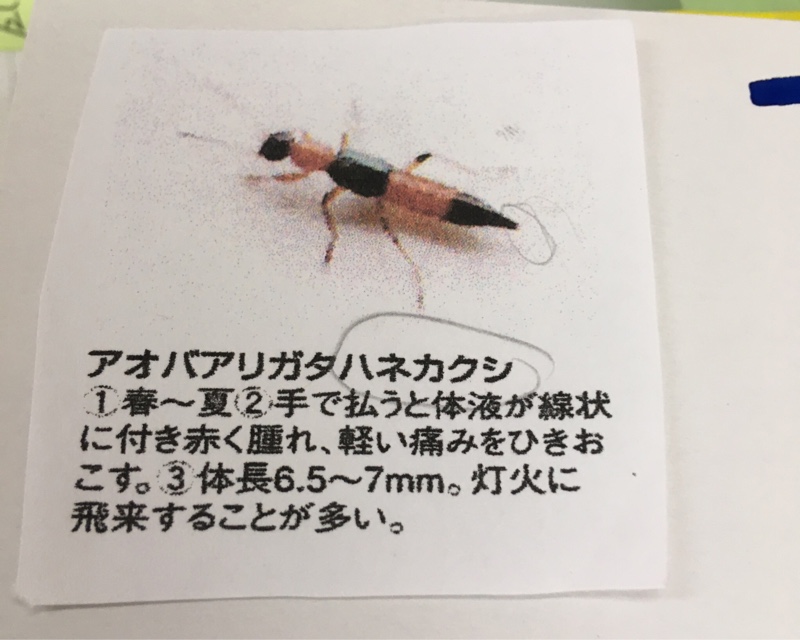 アオバアリガタハネカクシ
①春～夏②手で払うと体液が線状
に付き赤く腫れ、軽い痛みをひきお
こす。③体長6.5～7mm。灯火に
飛来することが多い。